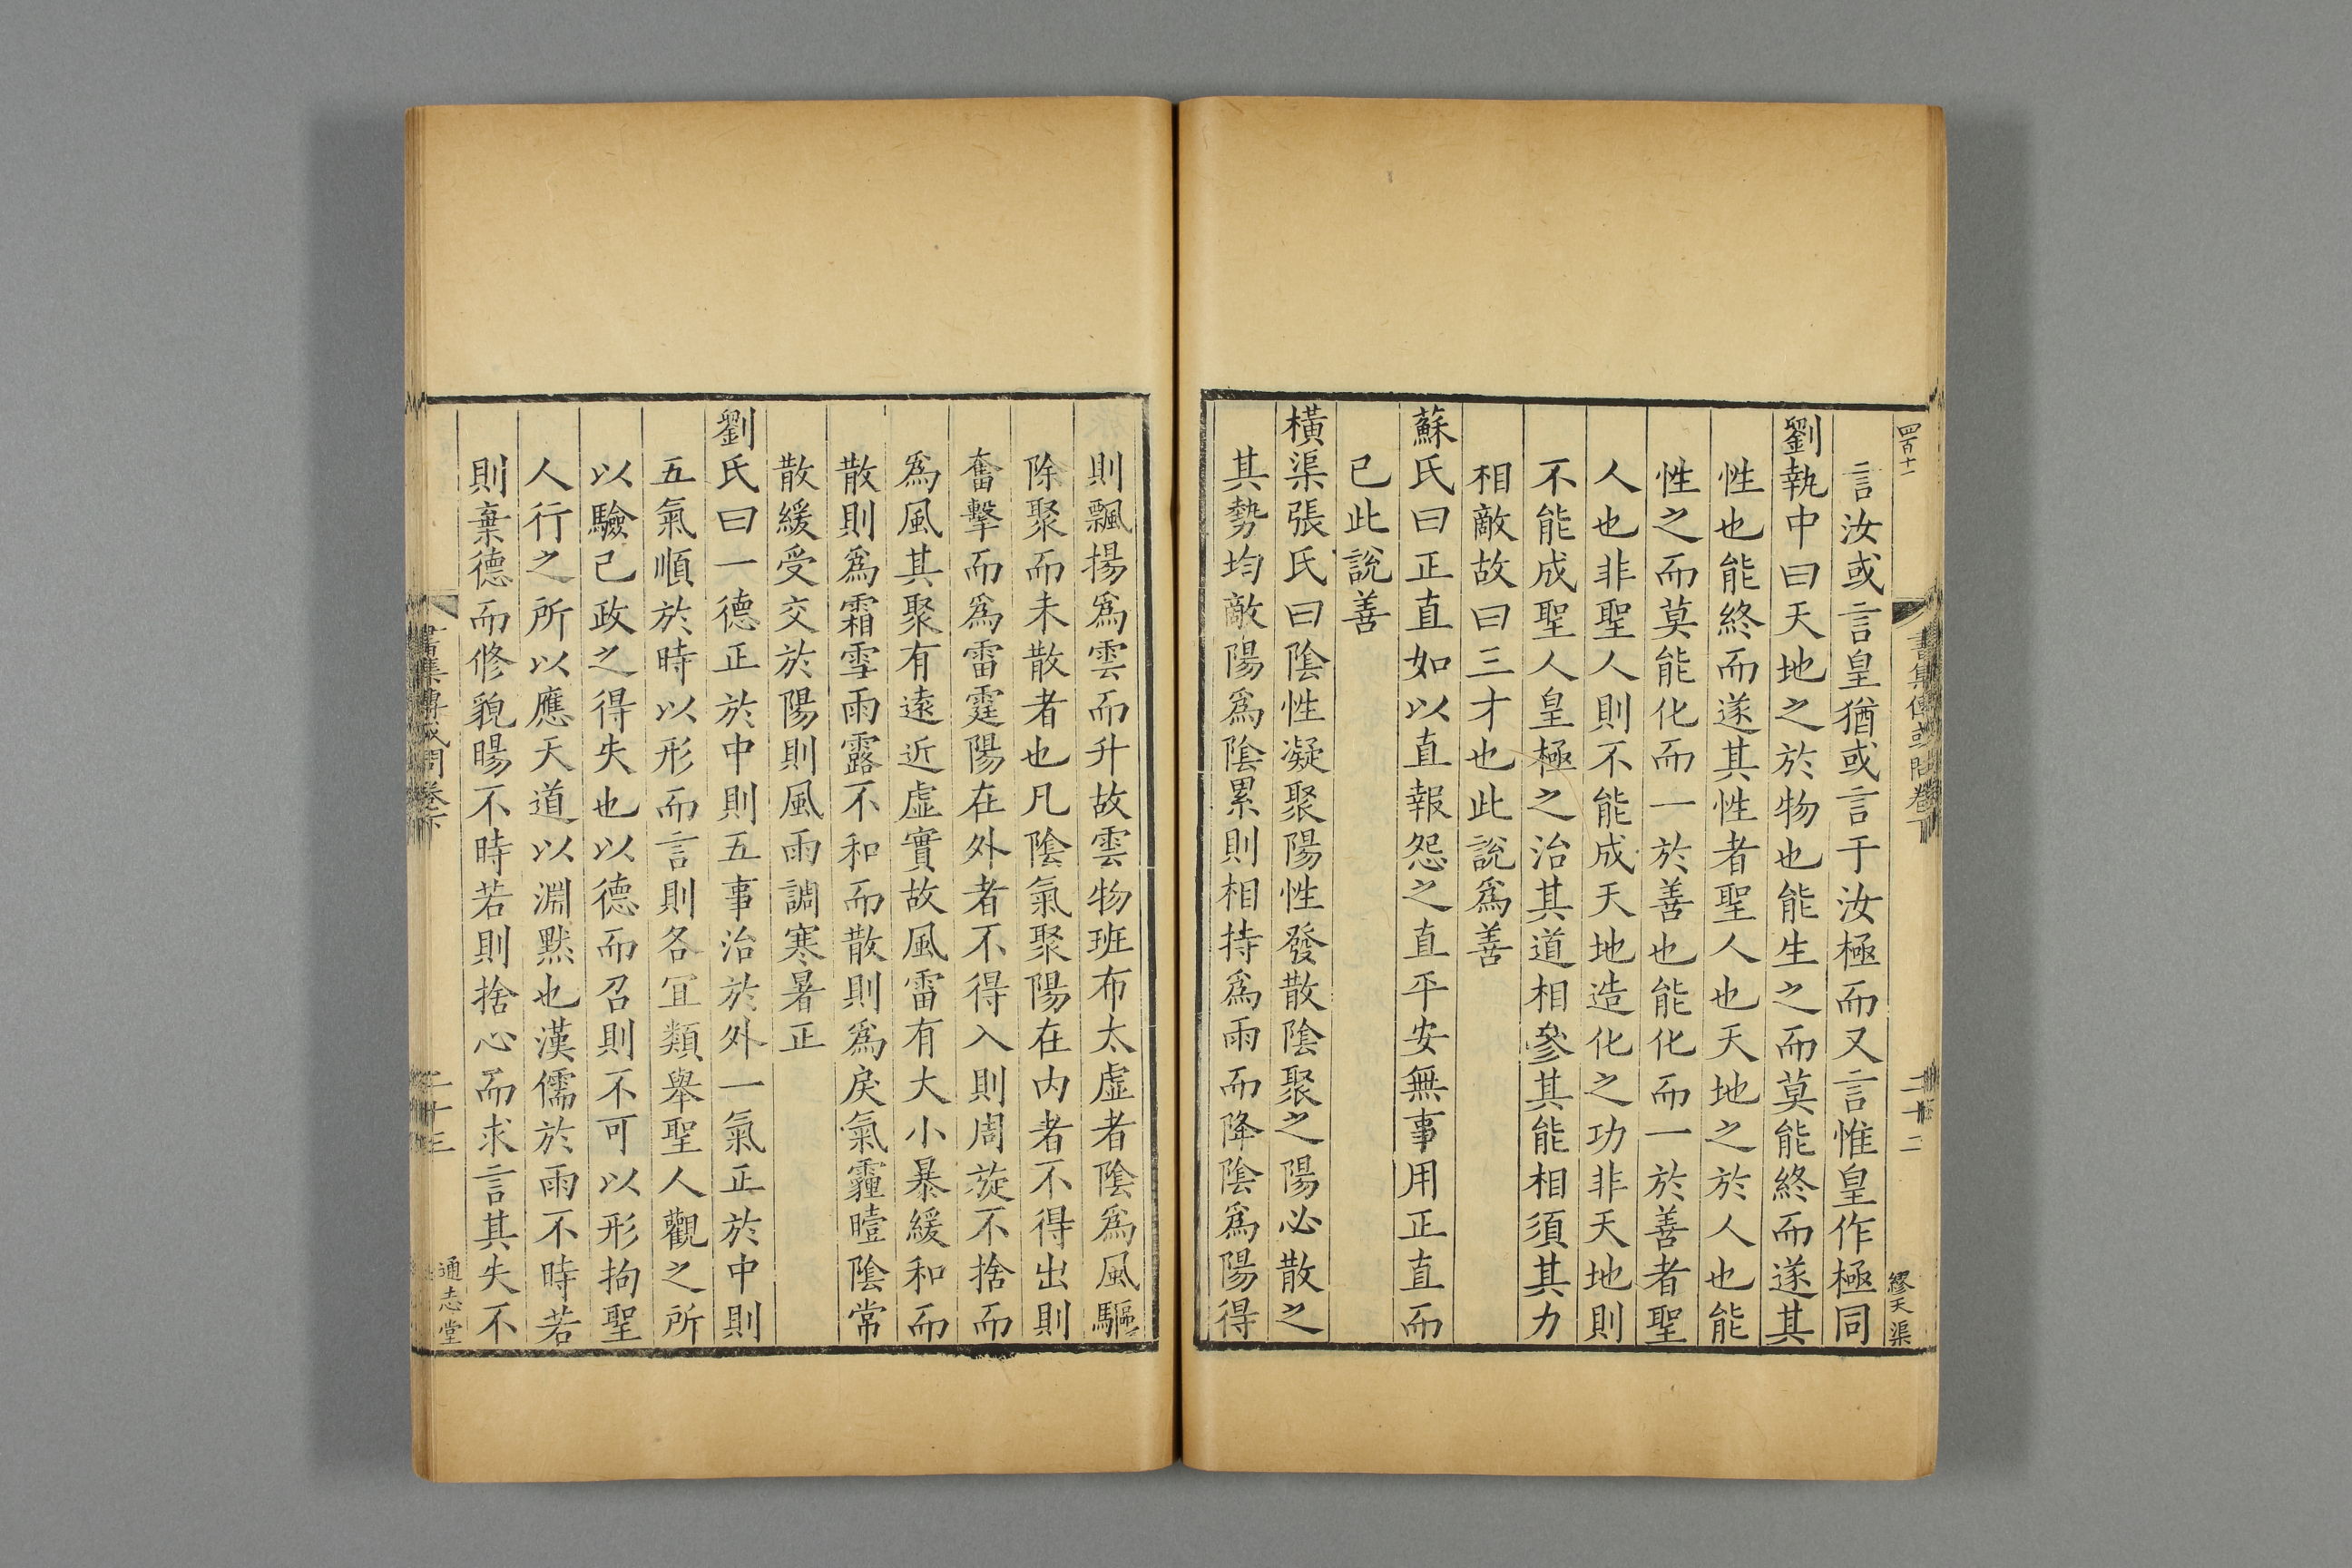 四百十一
書集傳或問卷下
二十二
繆天渠
言汝或言皇猶或言于汝極而又言惟皇作極同
劉執中曰天地之於物也能生之而莫能終而遂其
性也能終而遂其性者聖人也天地之於人也能
性之而莫能化而一於善也能化而一於善者聖
人也非聖人則不能成天地造化之功非天地則
不能成聖人皇極之治其道相參其能相須其力
相敵故曰三才也此說爲善
蘇氏曰正直如以直報怨之直平安無事用正直而
已此說善
橫渠張氏曰陰性凝聚陽性發散陰聚之陽必散之
其勢均敵陽爲陰累則相持爲雨而降陰爲陽得
則飄揚爲雲而升故雲物班布太虛者陰爲風驅
除聚而未散者也凡陰氣聚陽在內者不得出則
奮擊而爲雷霆陽在外者不得入則周旋不捨而
爲風其聚有遠近虛實故風雷有大小暴緩和而
散則爲霜雪雨露不和而散則爲戾氣霾曀陰常
散緩受交於陽則風雨調寒暑正
劉氏曰一德正於中則五事治於外一氣正於中則
五氣順於時以形而言則各冝類舉聖人觀之所
以驗己政之得失也以德而召則不可以形拘聖
人行之所以應天道以淵默也漢儒於雨不時若
則棄德而修貌暘不時若則捨心而求言其失不
書集傳或問卷下
二十三
通志堂